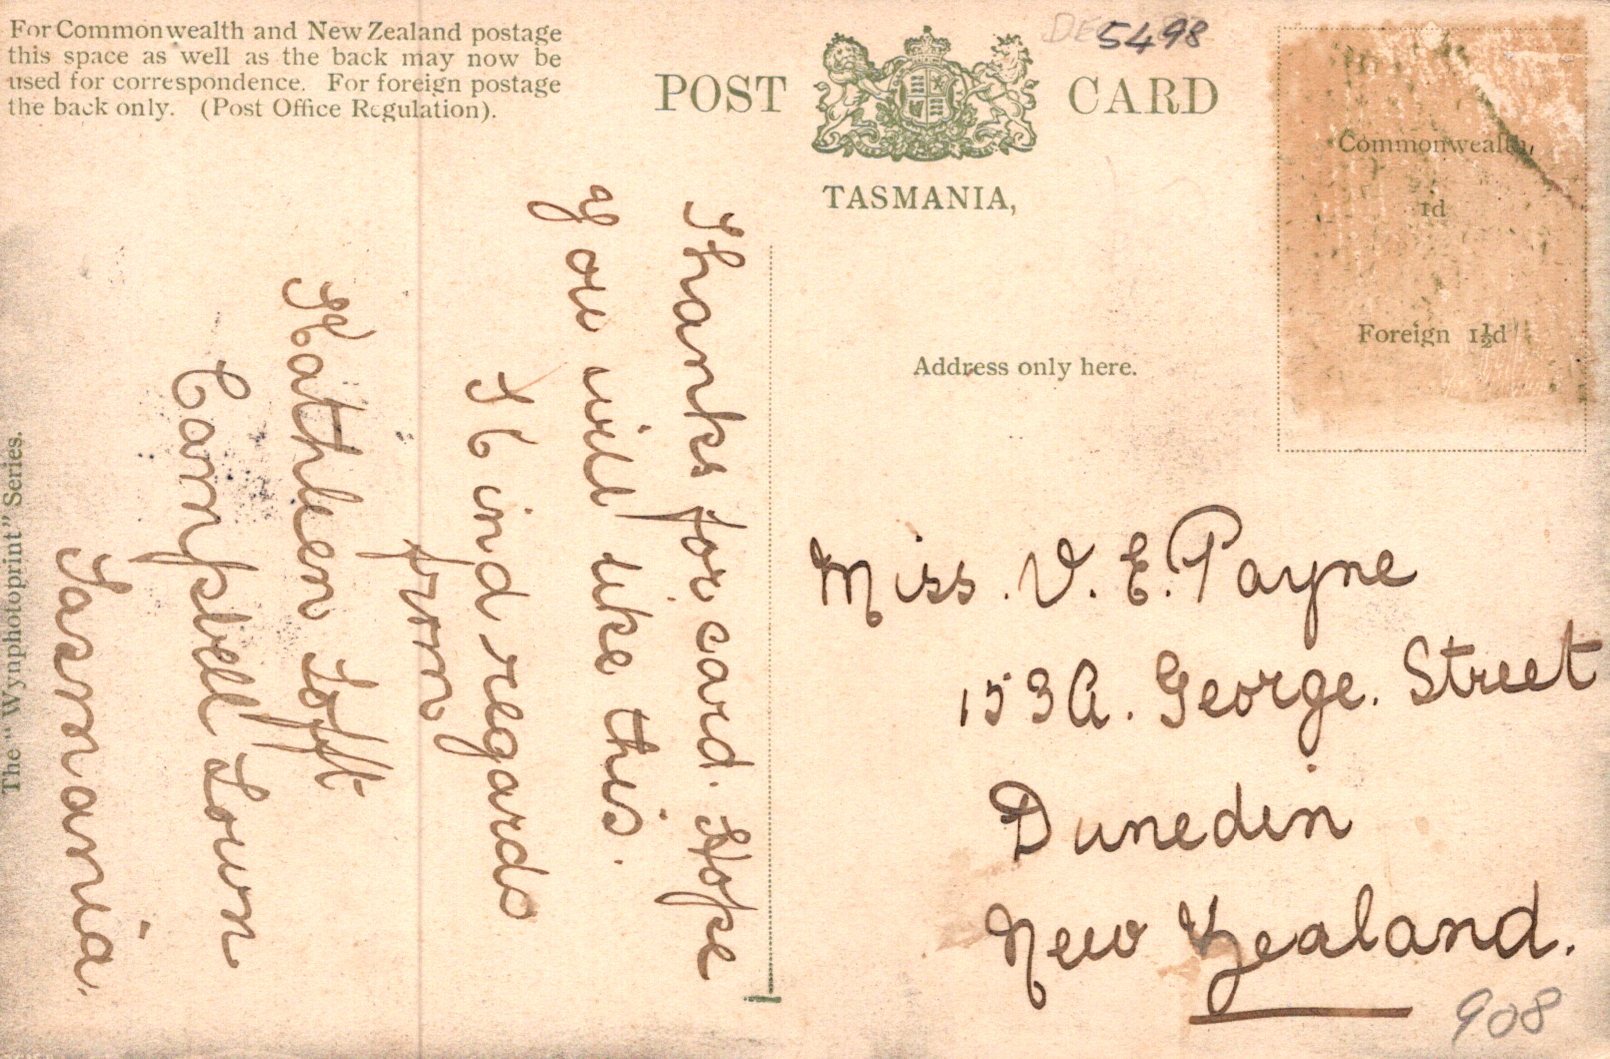 For Commonwealth and New Zealand postage
this space as well as the back may now be
used for correspondence. For foreign postage
the back only. (Post Office Regulation).
POST CARD
TASMANIA,
5498
Commonwealth,
1d
Foreign 1½d
Address only here.
Thanks for card. Hope
you will like this.
Kind regards
from
Kathleen Tofft
Campbell Town
Tasmania.
Miss. V. E. Payne
153A. George. Street
Dunedin
New Zealand.
908
The "Wynphotoprint" Series.